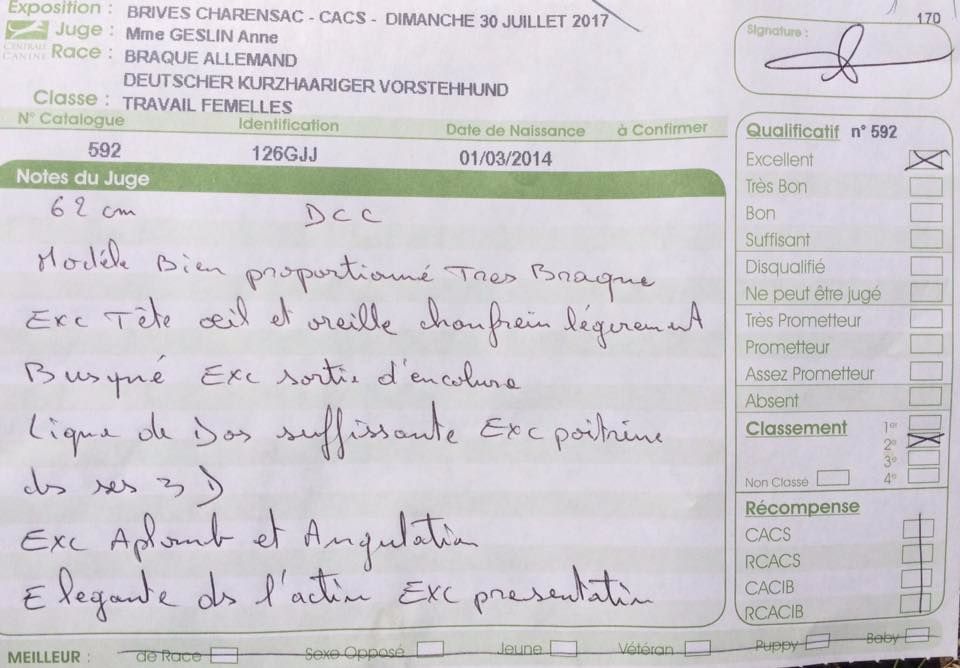 Exposition : BRIVES CHARENSAC - CACS - DIMANCHE 30 JUILLET 2017
170
Juge : Mme GESLIN Anne
CENTRALE CANINE
Race : BRAQUE ALLEMAND
DEUTSCHER KURZHAARIGER VORSTEHHUND
Classe : TRAVAIL FEMELLES
Signature :
N° Catalogue Identification Date de Naissance à Confirmer
592 126GJJ 01/03/2014
Notes du Juge
62 cm DCC
Modèle Bien proportionné Tres Braque
Exc Tête œil et oreille chanfrein légerement
Busqué Exc sortie d'encolure
Ligne de Dos suffissante Exc poitrine
ds ses 3 D
Exc Aplomb et Angulation
Elegante ds l'action Exc presentation
Qualificatif n° 592
Excellent
Très Bon
Bon
Suffisant
Disqualifié
Ne peut être jugé
Très Prometteur
Prometteur
Assez Prometteur
Absent
Classement 1er
2e
3e
Non Classé 4e
Récompense
CACS
RCACS
CACIB
RCACIB
MEILLEUR : de Race Sexe Opposé Jeune Vétéran Puppy Baby